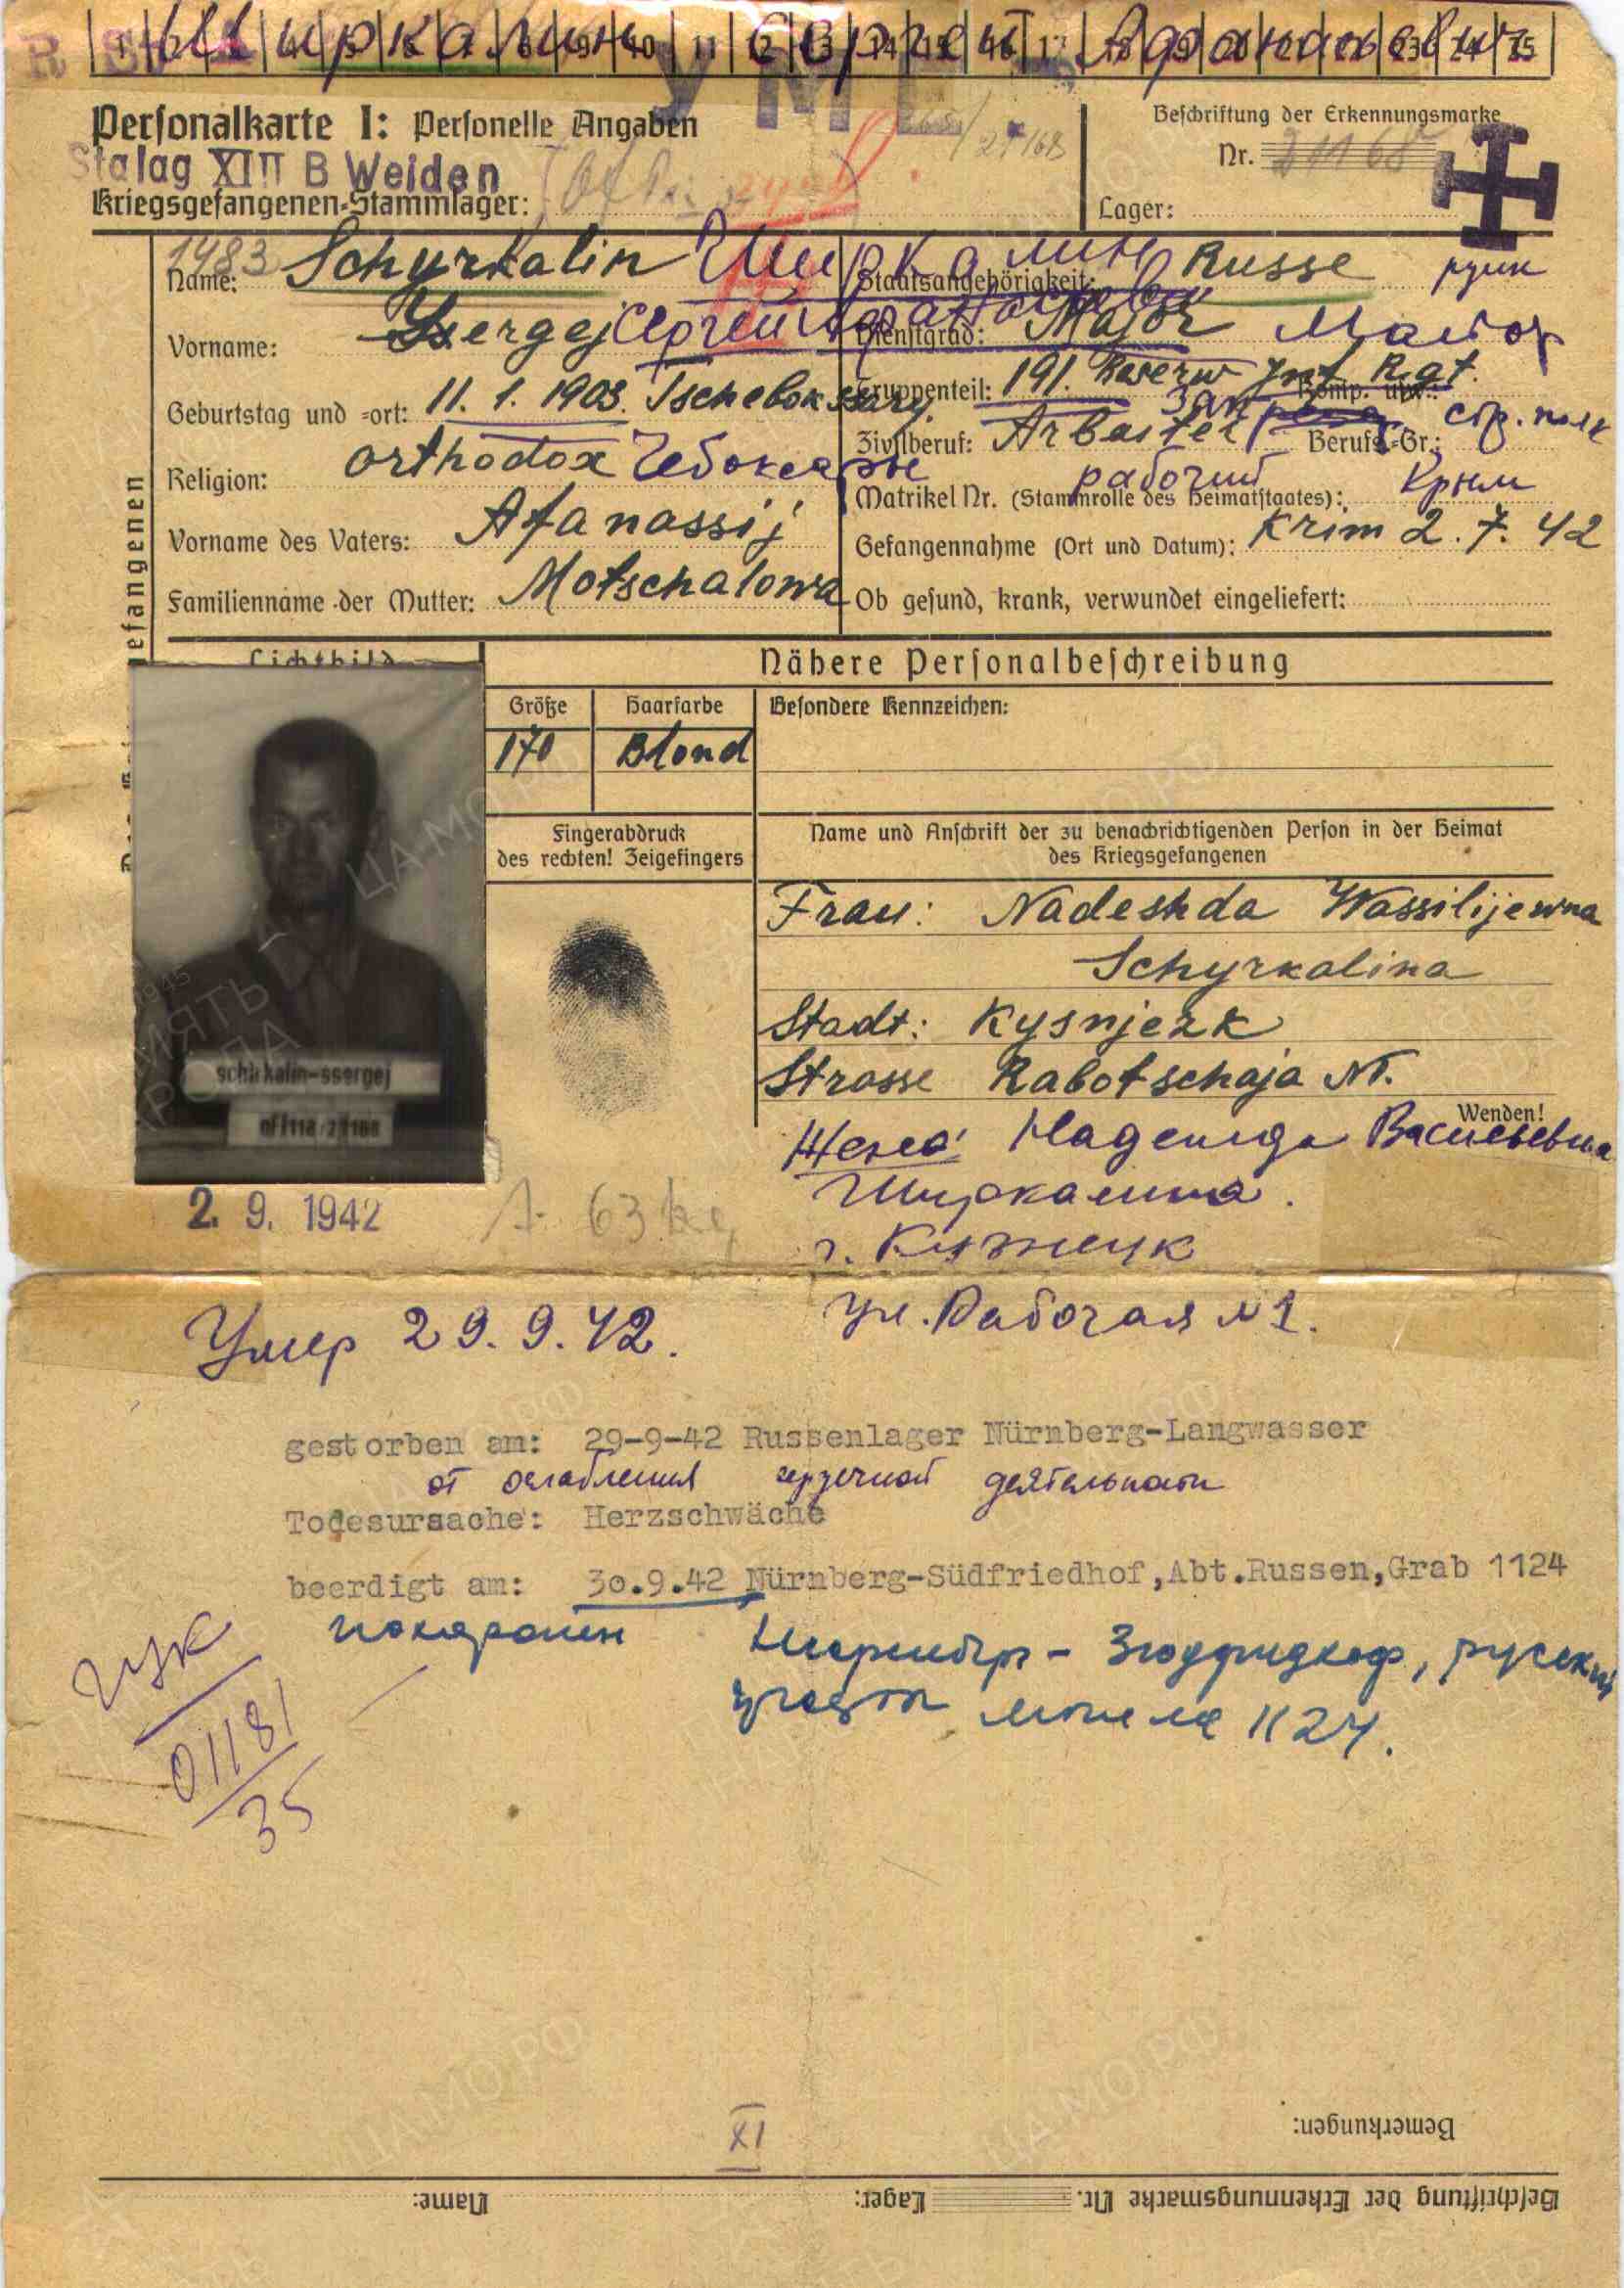 1 2 3 4 5 6 7 8 9 10 11 12 13 14 15 16 17 18 19 20 21 22 23 24 25
Ширкалин Сергей Афанасьевич
Personalkarte I: Personelle Angaben
Stalag XIII B Weiden
Kriegsgefangenen-Stammlager:
Beschriftung der Erkennungsmarke
Nr. 21168
Lager:
1483
Name: Schyrkalin Ширкалин
Vorname: Ssergej Сергей Афанасьевич
Geburtstag und -ort: 11. 1. 1903. Tschebokssary
Religion: orthodox Чебоксары
Vorname des Vaters: Afanassij
Familienname der Mutter: Motschalowa
Staatsangehörigkeit: Russe
русск
Dienstgrad: Major Майор
Truppenteil: 191. Reserw Inf. Rgt. Komp. usw.:
Зап стр. полк
Zivilberuf: Arbeiter Berufs-Gr.:
рабочий
Matrikel Nr. (Stammrolle des Heimatstaates): Крым
Gefangennahme (Ort und Datum): Krim 2. 7. 42
Ob gesund, krank, verwundet eingeliefert:
efangenen
Lichtbild
Nähere Personalbeschreibung
Größe
Haarfarbe
Besondere Kennzeichen:
170
Blond
Fingerabdruck
des rechten! Zeigefingers
Name und Anschrift der zu benachrichtigenden Person in der Heimat
des Kriegsgefangenen
Frau: Nadeshda Wassilijewna
Schyrkalina
Stadt: Kysnjezk
Strasse Rabotschaja N1.
Wenden!
schirkalin-ssergej
Жена Надежда Васильевна
Ширкалина.
г. Кузнецк
ул. Рабочая N 1.
2. 9. 1942
63 kg
Умер 29. 9. 42.
gestorben am: 29-9-42 Russenlager Nürnberg-Langwasser
от ослабления сердечной деятельности
Todesursache: Herzschwäche
beerdigt am: 30.9.42 Nürnberg-Südfriedhof,Abt.Russen,Grab 1124
похоронен Нюрнберг - Зюдфридхоф, русский
участок могила 1124.
ГУК
01181
35
XI
Bemerkungen:
Beschriftung der Erkennungsmarke Nr. Lager: Name: